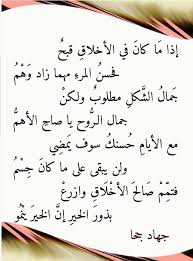 إذا مَا كانَ في الأخلاقِ قبحٌ
فحسنُ المرءِ مهما زاد وَهْمُ
جَمالُ الشَّكلِ مطلوبٌ ولكنْ
جمال الرُّوحِ يا صاحِ الأهمُّ
مع الأيامِ حُسنكَ سوف يَمضي
ولن يبقى على ما كانَ جِسْمُ
فتمِّمْ صَالحَ الأخْلاقِ وازرعْ
بذورَ الخيرِ إنَّ الخيرَ ينْمُو
جهاد جحا